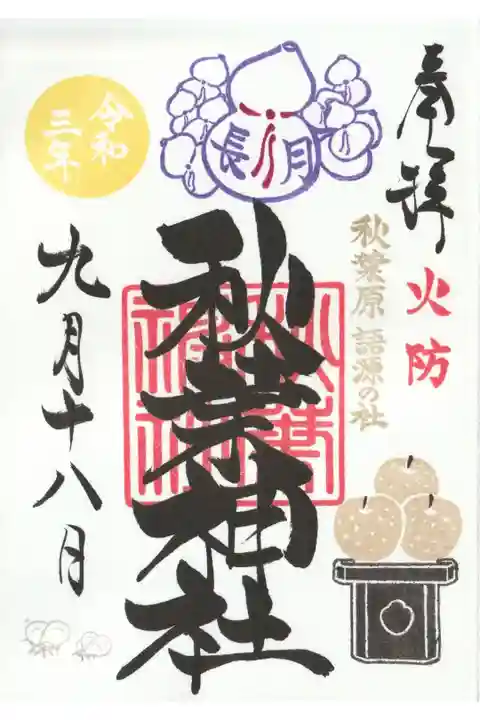 奉拝
火防
秋葉原 語源の社
長月
秋葉神社
秋葉神社
令和
三年
九月十八日